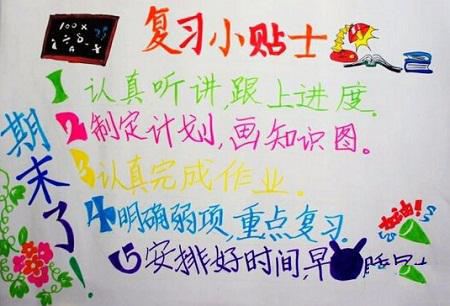 复习小贴士
期末了!
1 认真听讲,跟上进度。
2 制定计划,画知识图。
3 认真完成作业。
4 明确弱项,重点复习
5 安排好时间,早
加油!
100